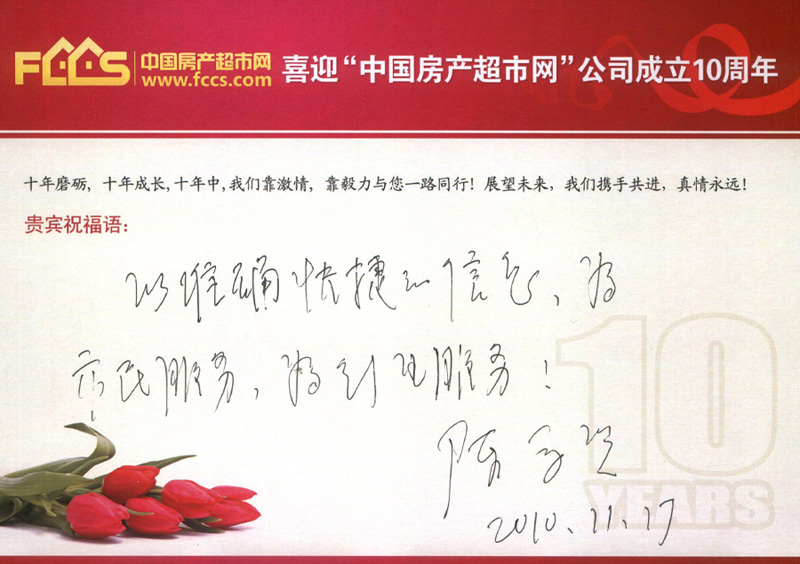 FCCS 中国房产超市网
www.fccs.com
喜迎“中国房产超市网”公司成立10周年
十年磨砺,十年成长,十年中,我们靠激情,靠毅力与您一路同行!展望未来,我们携手共进,真情永远!
贵宾祝福语:
以准确快捷的信息、为
市民服务,为到服务!
陈
2010.11.17
10
YEARS